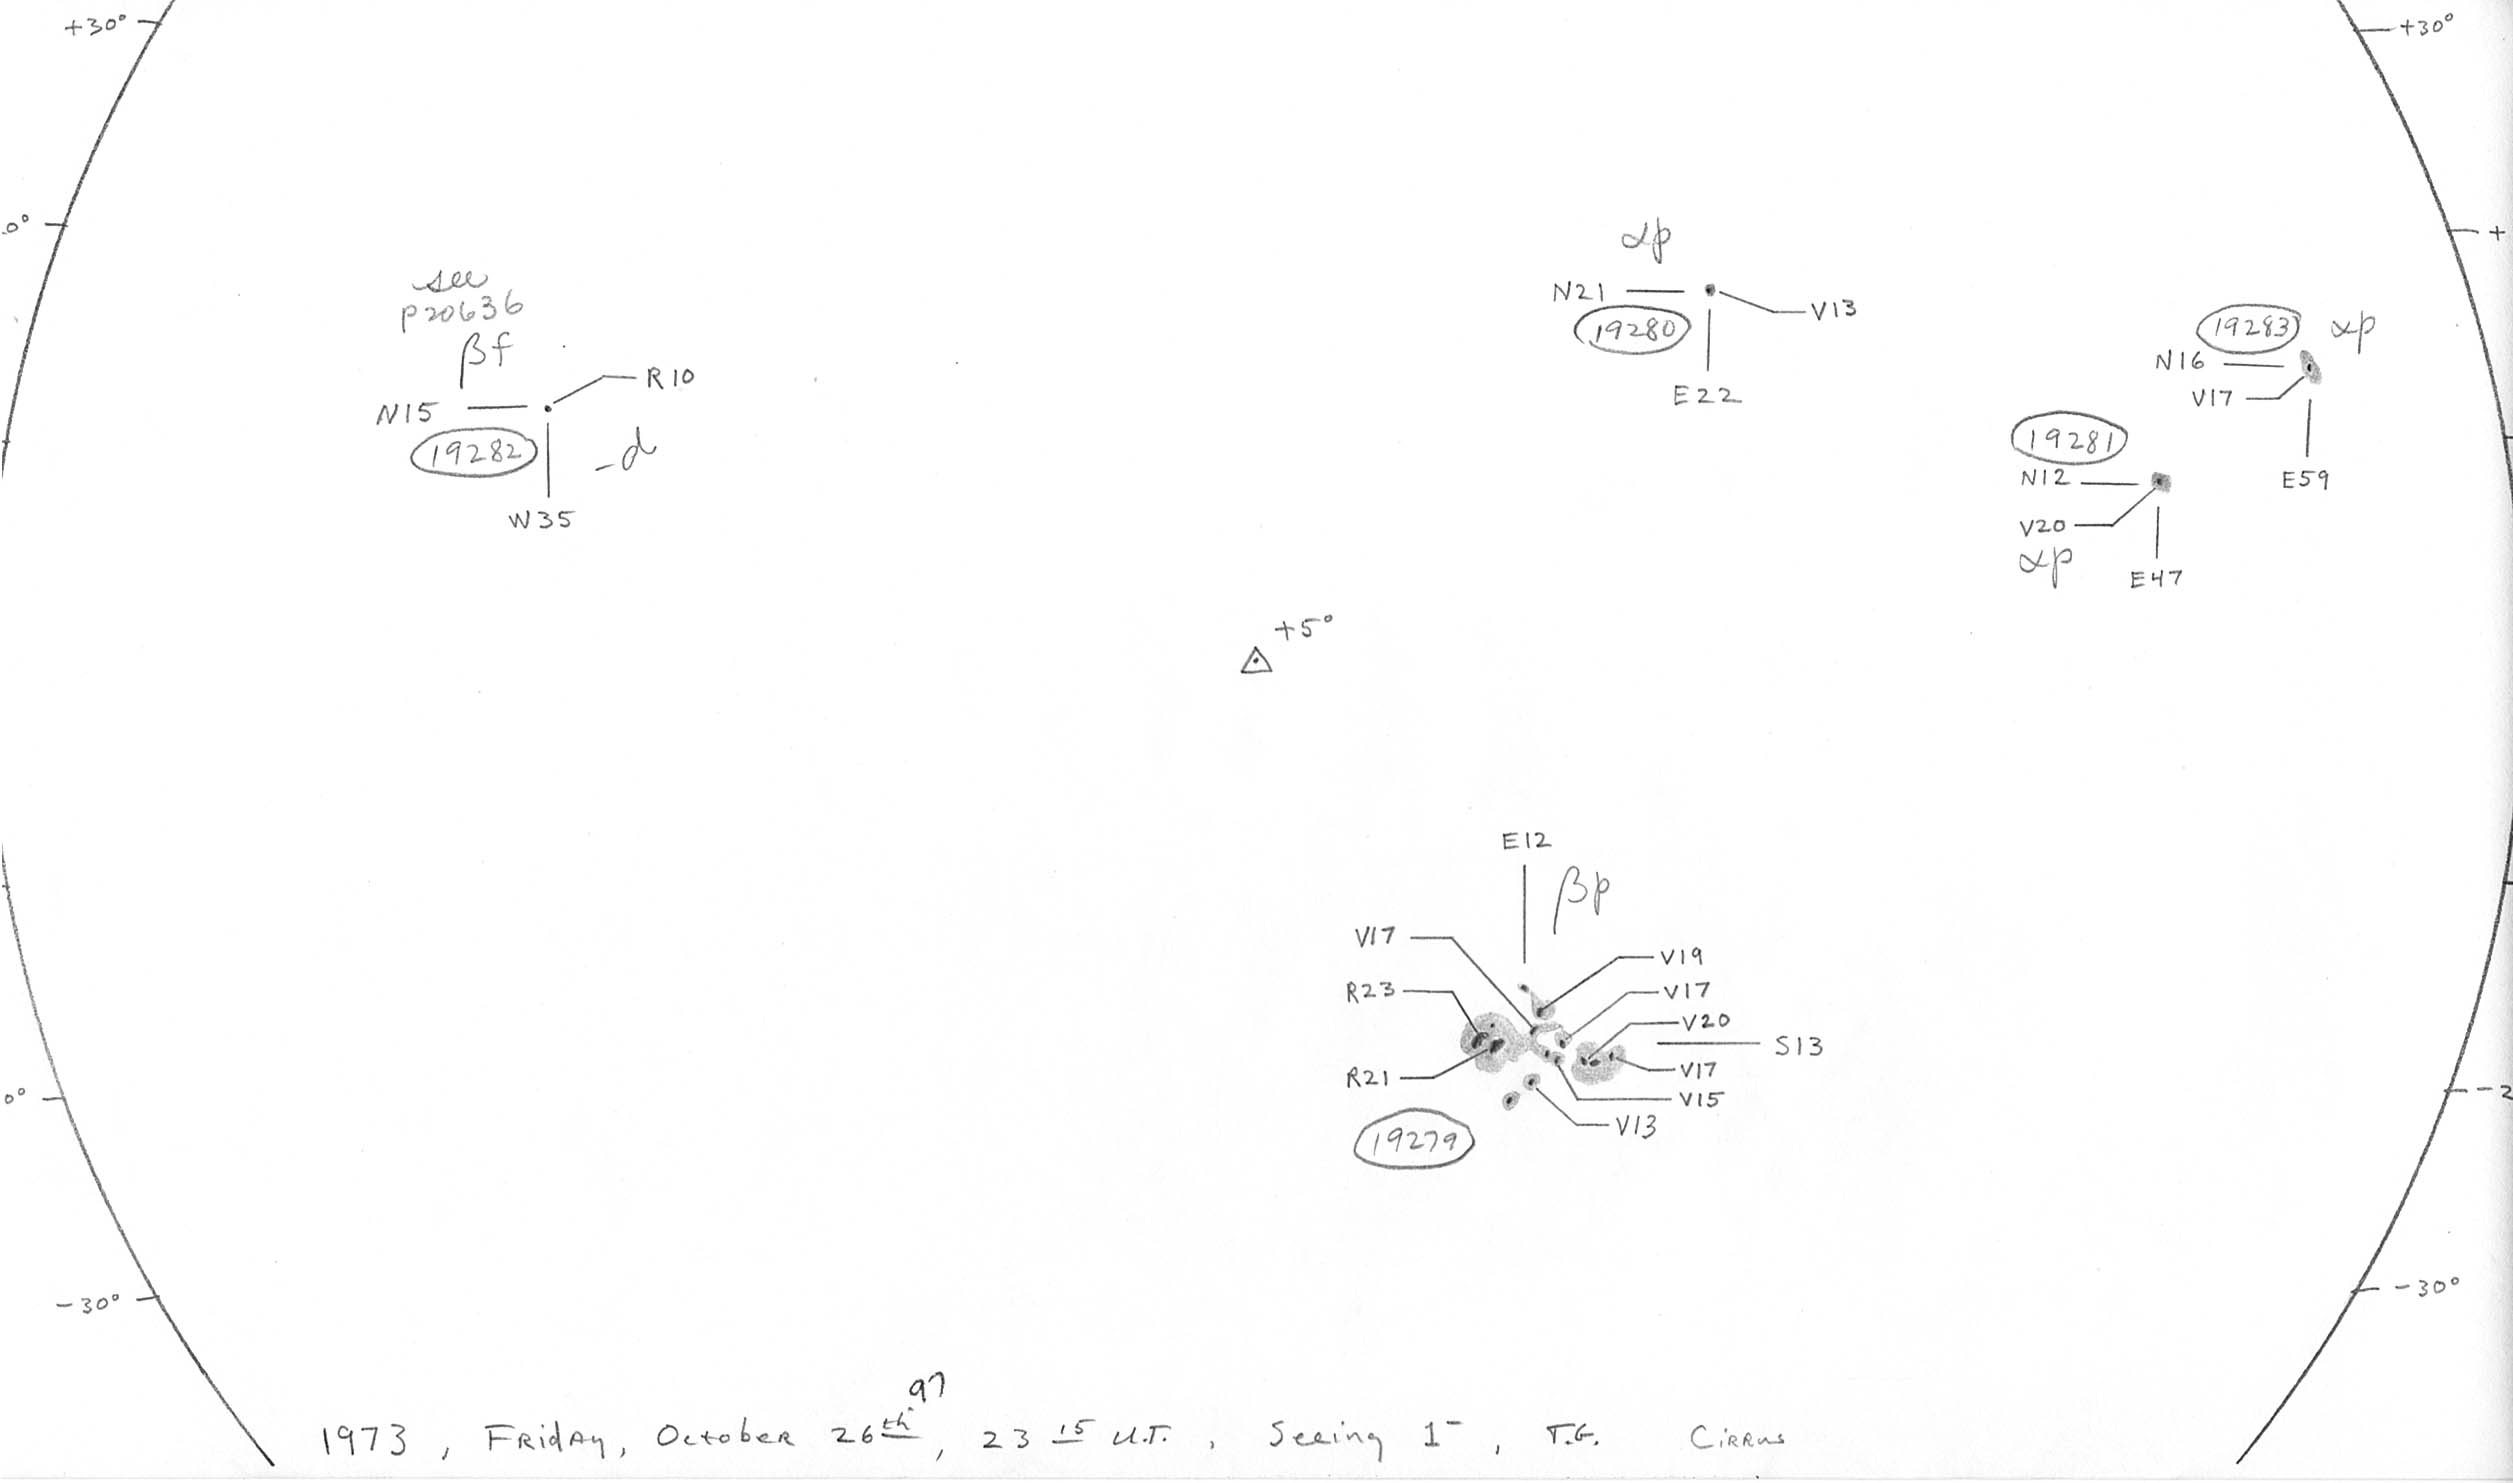 +30°
+30°
0°
+
αp
N21
V13
19280
E22
see
p20636
βf
R10
N15
19282
-d
W35
19283
αp
N16
V17
E59
19281
N12
V20
αp
E47
+5°
E12
βp
V17
V19
R23
V17
V20
S13
R21
V17
V15
V13
19279
0°
-2
-30°
-30°
97
1973, Friday, October 26th, 23 15 U.T., Seeing 1-, T.G. Cirrus